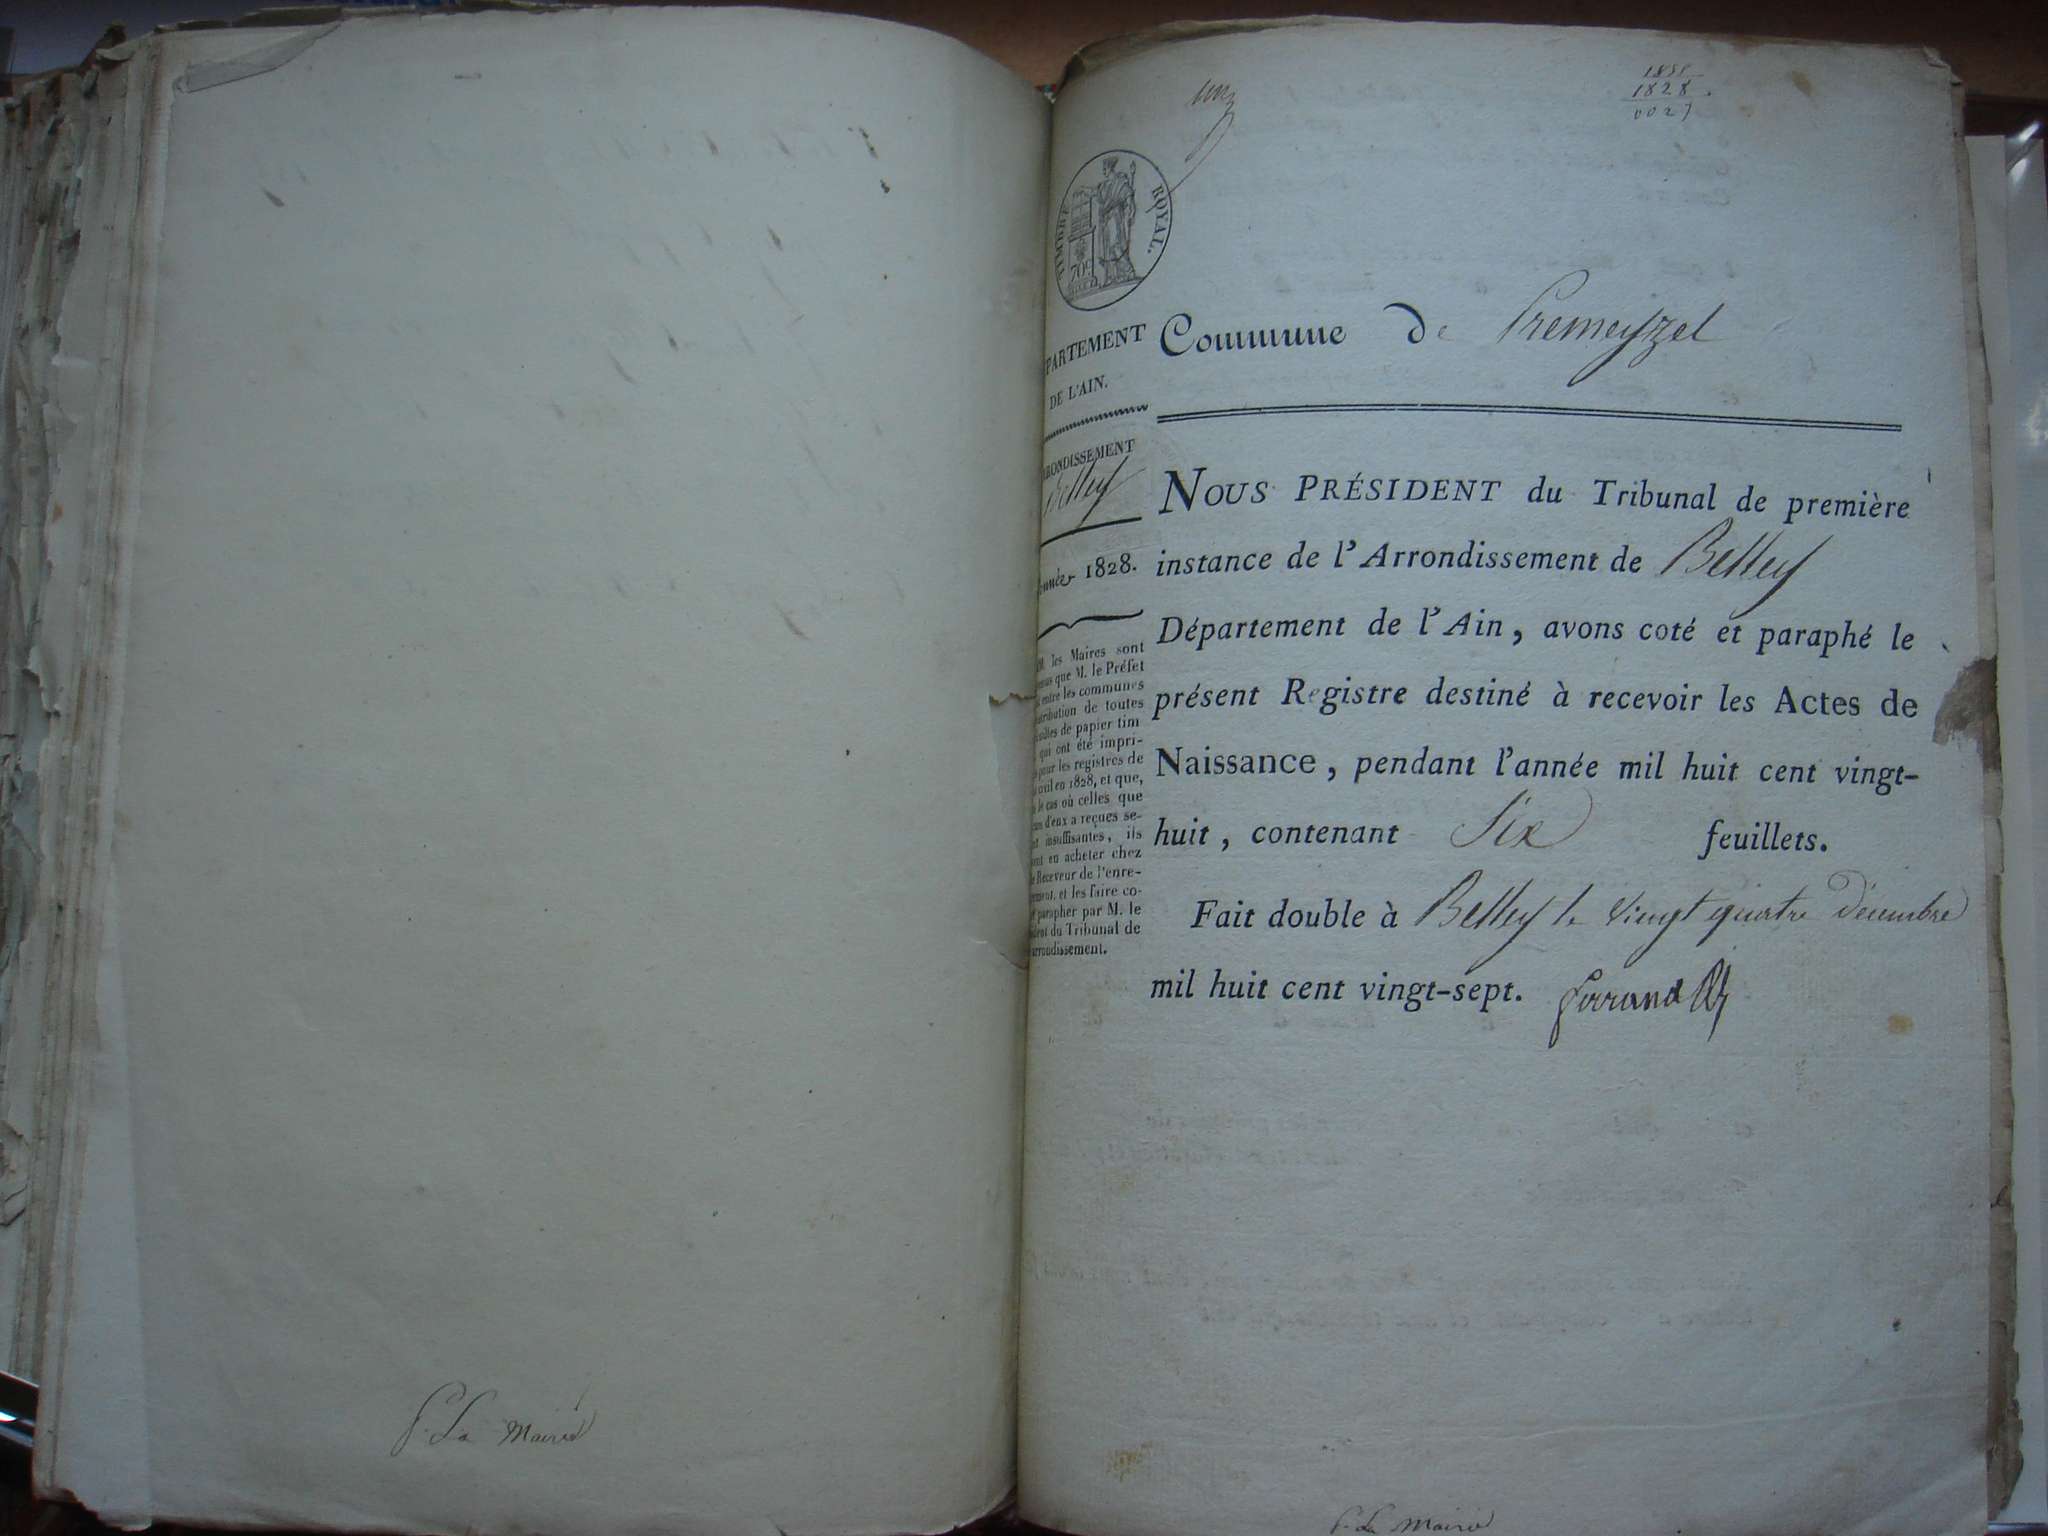 P. La Mairie
1828.
TIMBRE ROYAL.
PARTEMENT
DE L'AIN.
RONDISSEMENT
Belley
Année 1828.
les Maires sont
que M. le Préfet
entre les communes
tribution de toutes
de papier tim
qui ont été impri-
pour les registres de
civil en 1828, et que,
le cas où celles que
d'eux a reçues se-
insuffisantes, ils
en acheter chez
Receveur de l'enre-
et les faire co-
parapher par M. le
du Tribunal de
arrondissement.
Commune de Premeyzel
NOUS PRÉSIDENT du Tribunal de première
instance de l'Arrondissement de Belley
Département de l'Ain, avons coté et paraphé le
présent Registre destiné à recevoir les Actes de
Naissance, pendant l'année mil huit cent vingt-
huit, contenant Six feuillets.
Fait double à Belley le vingt quatre Décembre
mil huit cent vingt-sept.
P. La Mairie